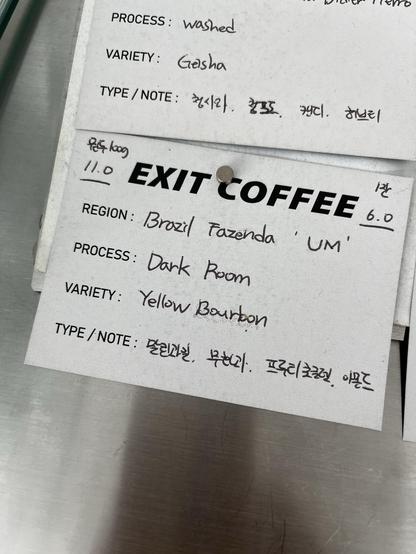 PROCESS: washed
VARIETY: Gesha
TYPE / NOTE: 청사과. 캔디. 허브티
11.0 EXIT COFFEE 1잔 6.0
REGION: Brazil Fazenda 'UM'
PROCESS: Dark Room
VARIETY: Yellow Bourbon
TYPE / NOTE: 말린과일. 무화과. 프루티초콜렛. 아몬드